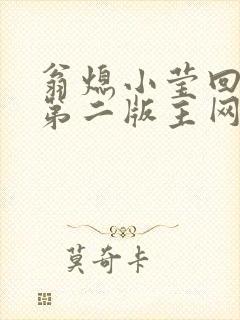 翁熄小莹回
第二版主网
莫奇卡